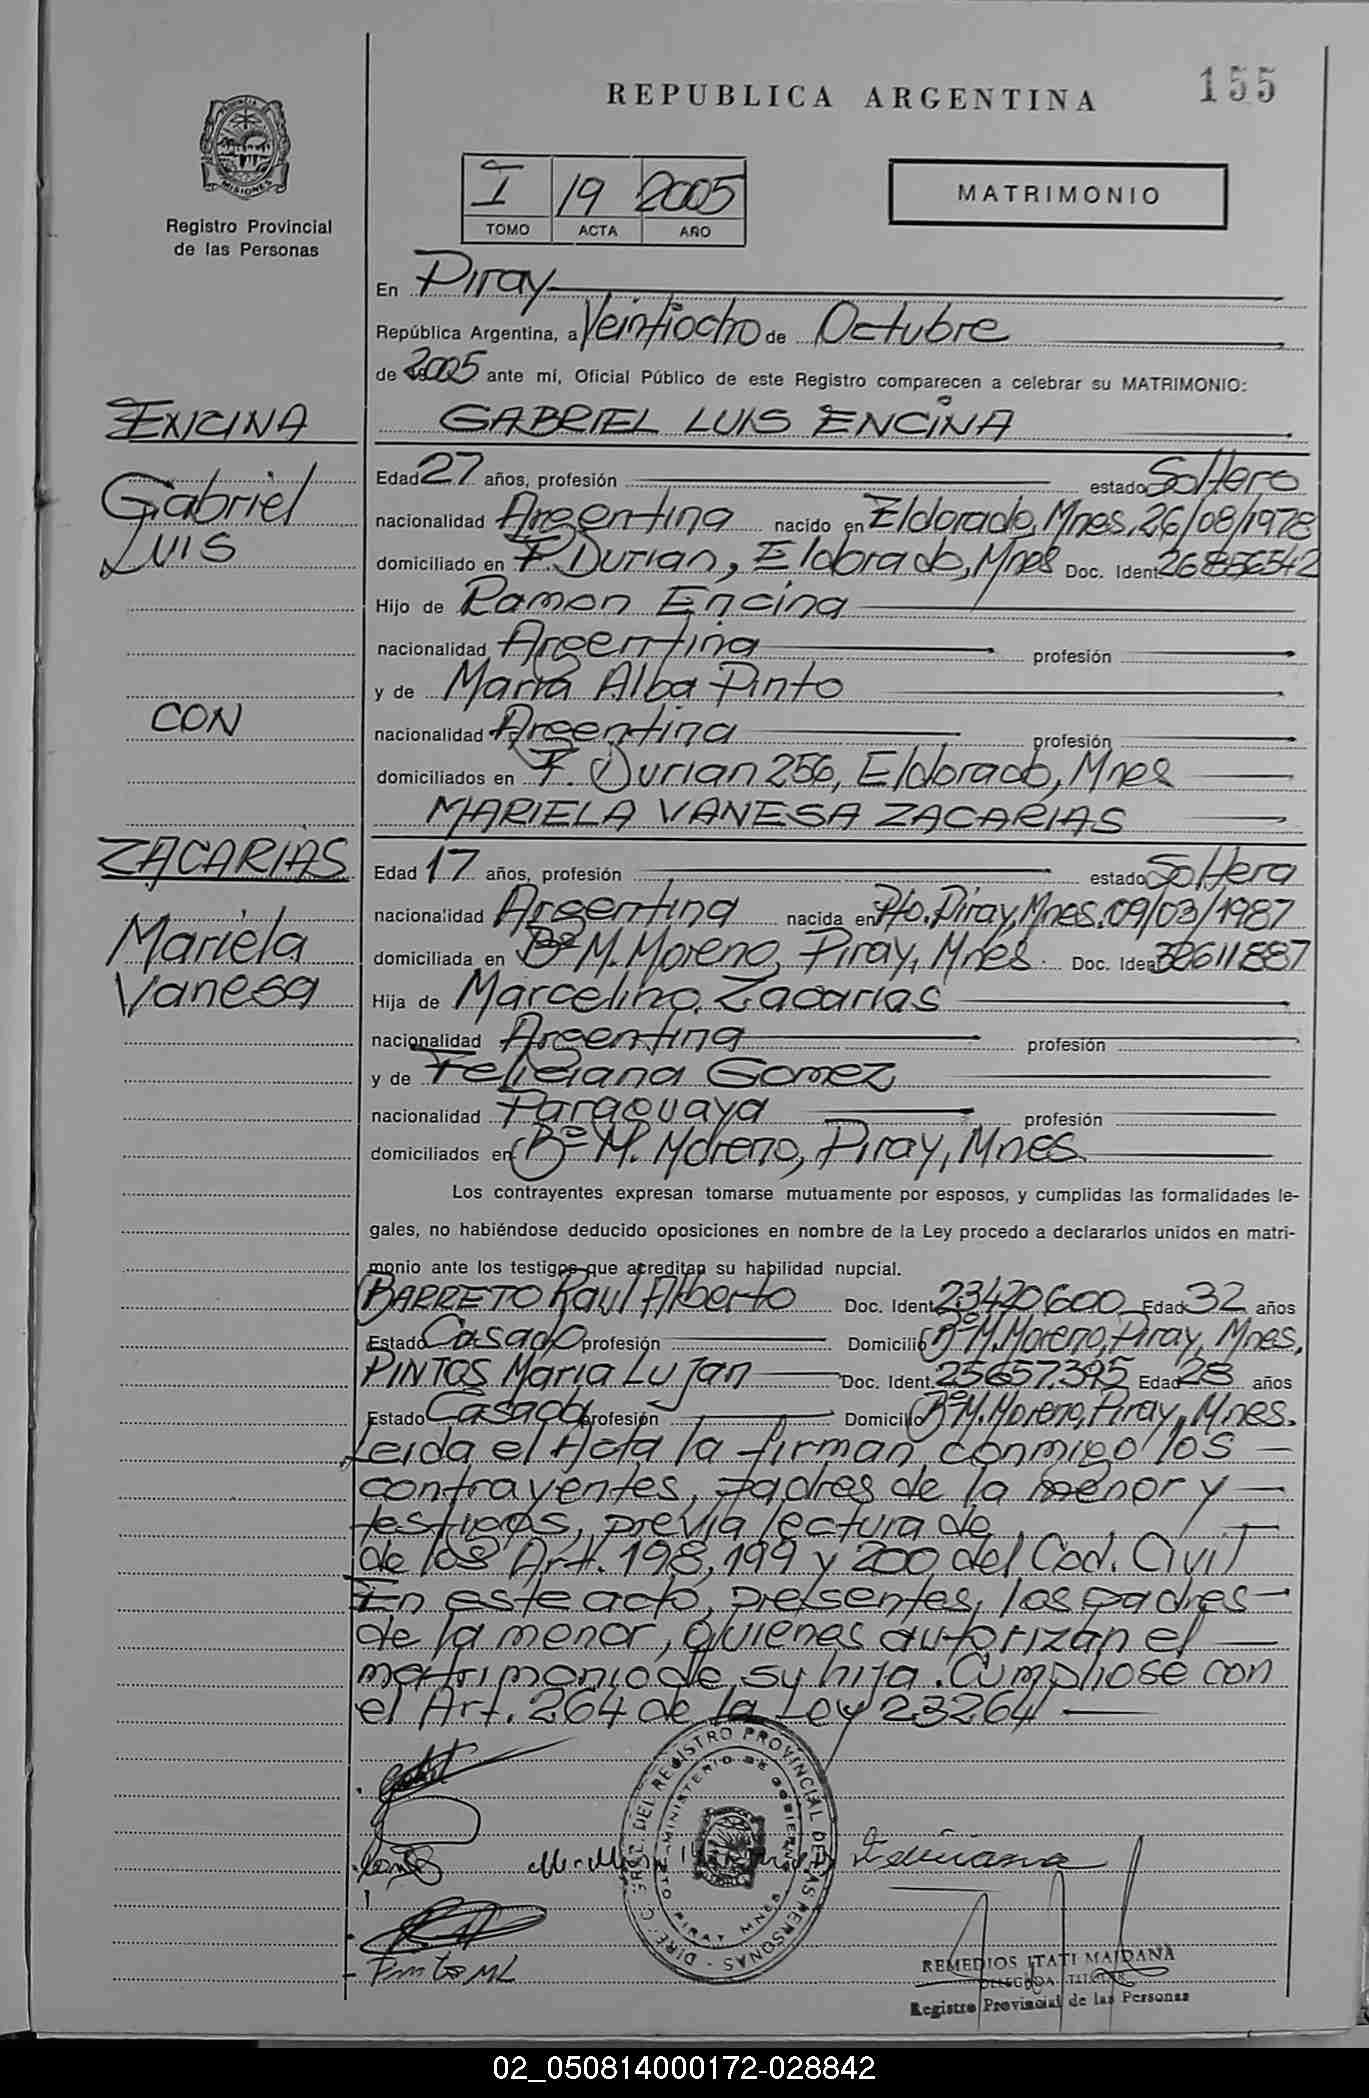 155
REPUBLICA ARGENTINA
PROVINCIA DE MISIONES
Registro Provincial
de las Personas
I 19 2005
TOMO ACTA AÑO
MATRIMONIO
En Piray
República Argentina, a Veintiocho de Octubre
de 2005 ante mí, Oficial Público de este Registro comparecen a celebrar su MATRIMONIO:
ENCINA
GABRIEL LUIS ENCINA
Gabriel
Luis
Edad 27 años, profesión estado Soltero
nacionalidad Argentina nacido en Eldorado, Mnes, 26/08/1978
domiciliado en F. Durian, Eldorado, Mnes Doc. Ident. 26856542
Hijo de Ramon Encina
nacionalidad Argentina profesión
y de Maria Alba Pinto
CON
nacionalidad Argentina profesión
domiciliados en F. Durian 256, Eldorado, Mnes
MARIELA VANESA ZACARIAS
ZACARIAS
Mariela
Vanesa
Edad 17 años, profesión estado Soltera
nacionalidad Argentina nacida en Pto. Piray, Mnes. 09/03/1987
domiciliada en Bº M. Moreno, Piray, Mnes. Doc. Iden 32611887
Hija de Marcelino Zacarias
nacionalidad Argentina profesión
y de Feliciana Gomez
nacionalidad Paraguaya profesión
domiciliados en Bº M. Moreno, Piray, Mnes.
Los contrayentes expresan tomarse mutuamente por esposos, y cumplidas las formalidades le-
gales, no habiéndose deducido oposiciones en nombre de la Ley procedo a declararlos unidos en matri-
monio ante los testigos que acreditan su habilidad nupcial.
BARRETO Raul Alberto Doc. Ident. 23420600 Edad 32 años
Estado Casado profesión Domicilio Bº M. Moreno, Piray, Mnes.
PINTOS Maria Lujan Doc. Ident. 25657.395 Edad 28 años
Estado Casada profesión Domicilio Bº M. Moreno, Piray, Mnes.
Leida el Acta la firman conmigo los
contrayentes, padres de la menor y
testigos, previa lectura de
de los Art. 198, 199 y 200 del Cod. Civil
En este acto, presentes, los padres
de la menor, quienes autorizan el
matrimonio de su hija. Cumpliose con
el Art. 264 de la Ley 23264
DIREC. GRAL. DEL REGISTRO PROVINCIAL DE LAS PERSONAS
MINISTERIO DE GOBIERNO
PTO PIRAY MNES
Feliciana
Pintos ML
REMEDIOS ITATI MAIDANA
DELEGADA TITULAR
Registro Provincial de las Personas
02_050814000172-028842